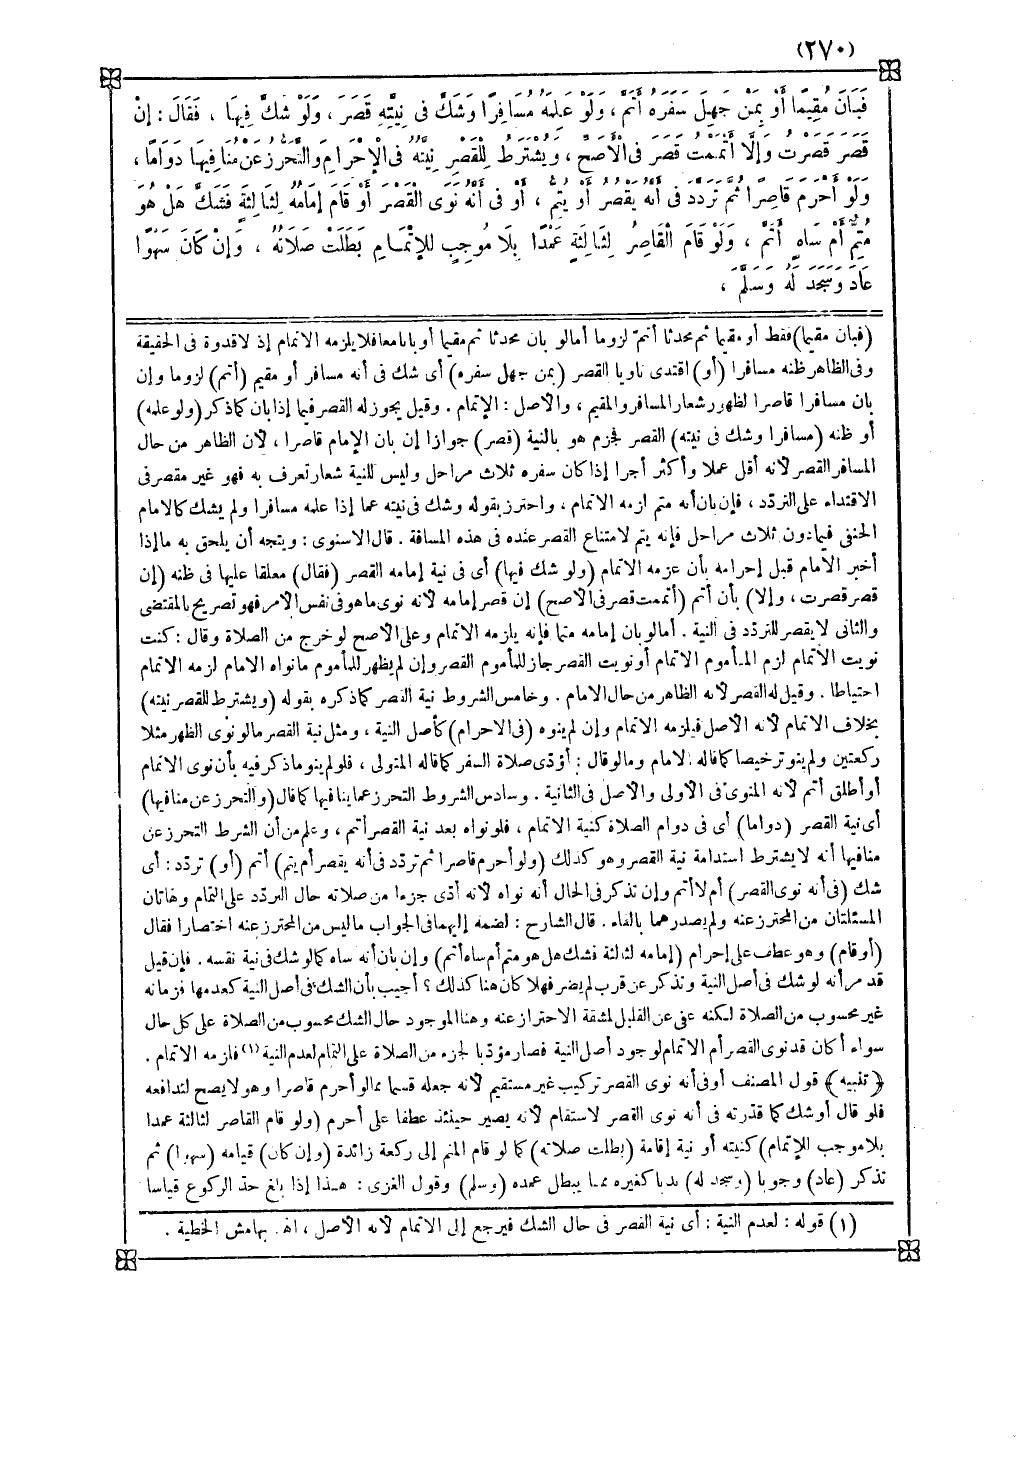 (٢٧٠)
فَبَانَ مُقِيمًا أَوْ بِمَنْ جَهِلَ سَفَرَهُ أَتَمَّ ، وَلَوْ عَلِمَهُ مُسَافِرًا وَشَكَّ فى نِيَّتِهِ قَصَرَ ، وَلَوْ شَكَّ فِيهَا ، فَقَالَ : إِنْ
قَصَرَ قَصَرْتُ وَإِلَّا أَتْمَمْتُ قَصَرَ فى الْأَصَحِّ ، وَيُشْتَرَطُ لِلْقَصْرِ نِيَّتُهُ فى الْإِحْرَامِ وَالتَّحَرُّزُ عَنْ مُنَافِيهَا دَوَامًا ،
وَلَوْ أَحْرَمَ قَاصِرًا ثُمَّ تَرَدَّدَ فى أَنَّهُ يَقْصُرُ أَوْ يُتِمُّ ، أَوْ فى أَنَّهُ نَوَى الْقَصْرَ أَوْ قَامَ إِمَامُهُ لِثَالِثَةٍ فَشَكَّ هَلْ هُوَ
مُتِمٌّ أَمْ سَاهٍ أَتَمَّ ، وَلَوْ قَامَ الْقَاصِرُ لِثَالِثَةٍ عَمْدًا بِلَا مُوجِبٍ لِلْإِتْمَامِ بَطَلَتْ صَلَاتُهُ ، وَإِنْ كَانَ سَهْوًا
عَادَ وَسَجَدَ لَهُ وَسَلَّمَ ،
(فبان مقيما) فقط أو مقيما ثم محدثا أتمّ لزوما أما لو بان محدثا ثم مقيما أو بانا معا فلا يلزمه الاتمام إذ لا قدوة فى الحقيقة
وفى الظاهر ظنه مسافرا (أو) اقتدى ناويا القصر (بمن جهل سفره) أى شك فى أنه مسافر أو مقيم (أتم) لزوما وإن
بان مسافرا قاصرا لظهور شعار المسافر والمقيم ، والأصل : الإتمام . وقيل يجوز له القصر فيما إذا بان كما ذكر (ولو علمه)
أو ظنه (مسافرا وشك فى نيته) القصر فجزم هو بالنية (قصر) جوازا إن بان الإمام قاصرا ، لأن الظاهر من حال
المسافر القصر لأنه أقل عملا وأكثر أجرا إذا كان سفره ثلاث مراحل وليس للنية شعار تعرف به فهو غير مقصر فى
الاقتداء على التردّد ، فإن بان أنه متم لزمه الاتمام ، واحترز بقوله وشك فى نيته عما إذا علمه مسافرا ولم يشك كالامام
الحنفى فيما دون ثلاث مراحل فإنه يتم لامتناع القصر عنده فى هذه المسافة . قال الاسنوى : ويتجه أن يلحق به ما إذا
أخبر الامام قبل إحرامه بأن عزمه الاتمام (ولو شك فيها) أى فى نية إمامه القصر (فقال) معلقا عليها فى ظنه (إن
قصر قصرت ، وإلا) بأن أتم (أتممت قصر فى الأصح) إن قصر إمامه لأنه نوى ما هو فى نفس الأمر فهو تصريح بالمقتضى
والثانى لا يقصر للتردّد فى النية . أما لو بان إمامه متما فإنه يلزمه الاتمام وعلى الأصح لو خرج من الصلاة وقال : كنت
نويت الأتمام لزم المأموم الاتمام أو نويت القصر جاز للمأموم القصر وإن لم يظهر للمأموم ما نواه الامام لزمه الاتمام
احتياطا . وقيل له القصر لأنه الظاهر من حال الامام . وخامس الشروط نية القصر كما ذكره بقوله (ويشترط للقصر نيته)
بخلاف الاتمام لأنه الأصل فيلزمه الاتمام وإن لم ينوه (فى الاحرام) كأصل النية ، ومثل نية القصر ما لو نوى الظهر مثلا
ركعتين ولم ينو ترخيصا كما قاله الامام وما لو قال : أؤدّى صلاة السفر كما قاله المتولى ، فلو لم ينو ما ذكر فيه بأن نوى الاتمام
أو أطلق أتم لأنه المنوىّ فى الأولى والأصل فى الثانية . وسادس الشروط التحرز عما ينافيها كما قال (والتحرز عن منافيها)
أى نية القصر (دواما) أى فى دوام الصلاة كنية الاتمام ، فلو نواه بعد نية القصر أتم ، وعلم من أن الشرط التحرز عن
منافيها أنه لا يشترط استدامة نية القصر وهو كذلك (ولو أحرم قاصرا ثم تردّد فى أنه يقصر أم يتم) أتم (أو) تردّد : أى
شك (فى أنه نوى القصر) أم لا أتم وإن تذكر فى الحال أنه نواه لأنه أدّى جزءا من صلاته حال التردّد على التمام وهاتان
المسئلتان من المحترز عنه ولم يصدرهما بالفاء . قال الشارح : لضمه إليهما فى الجواب ما ليس من المحترز عنه اختصارا فقال
(أو قام) وهو عطف على إحرام (إمامه لثالثة فشك هل هو متم أم ساه أتم) وإن بان أنه ساه كما لو شك فى نية نفسه . فإن قيل
قد مر أنه لو شك فى أصل النية وتذكر عن قرب لم يضر فهلا كان هنا كذلك ؟ أجيب بأن الشك فى أصل النية كعدمها فزمانه
غير محسوب من الصلاة لكنه عفى عن القليل لمشقة الاحتراز عنه وهنا الموجود حال الشك محسوب من الصلاة على كل حال
سواء أكان قد نوى القصر أم الاتمام لوجود أصل النية فصار مؤدّيا لجزء من الصلاة على التمام لعدم النية (١) فلزمه الاتمام .
﴿تنبيه﴾ قول المصنف أو فى أنه نوى القصر تركيب غير مستقيم لأنه جعله قسيما لما لو أحرم قاصرا وهو لا يصح لتدافعه
فلو قال أو شك كما قدّرته فى أنه نوى القصر لاستقام لأنه يصير حينئذ عطفا على أحرم (ولو قام القاصر لثالثة عمدا
بلا موجب الإتمام) كنيته أو نية إقامة (بطلت صلاته) كما لو قام المتم إلى ركعة زائدة (وإن كان) قيامه (سهوا) ثم
تذكر (عاد) وجوبا (وسجد له) ندبا كغيره مما يبطل عمده (وسلم) وقول الغزى : هذا إذا بلغ حدّ الركوع قياسا
(١) قوله : لعدم النية : أى نية القصر فى حال الشك فيرجع إلى الاتمام لأنه الأصل ، اهـ . بهامش الخطية .